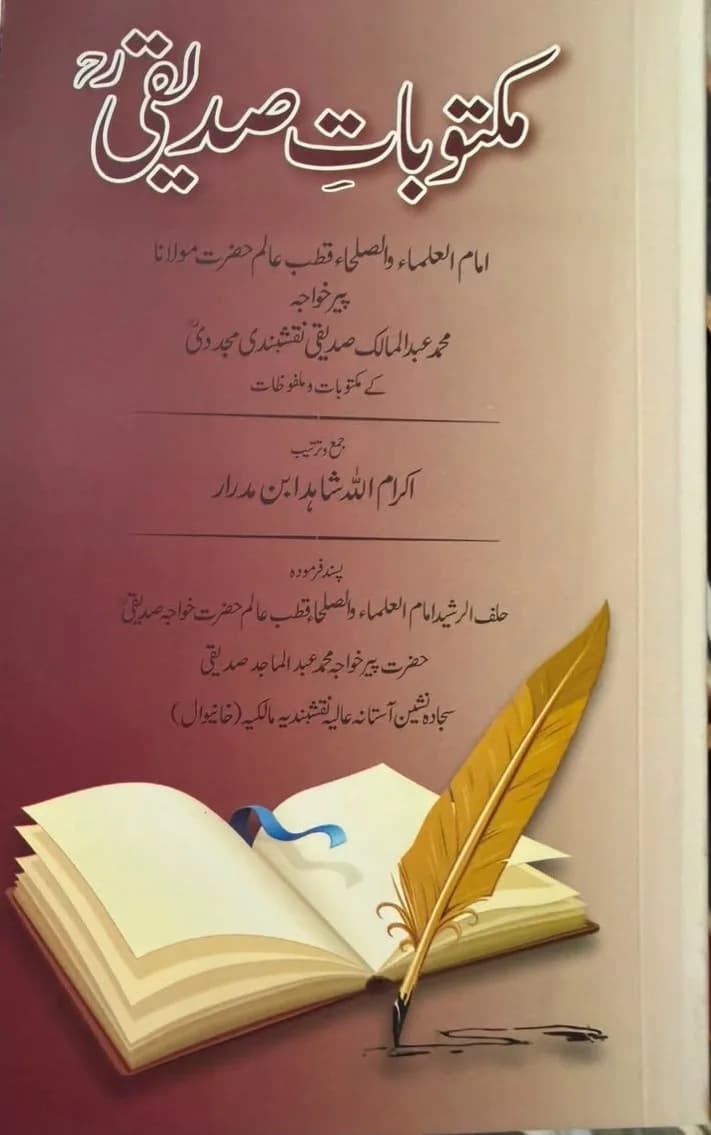 مکتوباتِ صدیقیؒ
امام العلماء والصلحاء قطب عالم حضرت مولانا
پیر خواجہ
محمد عبدالمالک صدیقی نقشبندی مجددیؒ
کے مکتوبات و ملفوظات
جمع و ترتیب
اکرام اللہ شاہد ابن مدرار
پسند فرمودہ
خلف الرشید امام العلماء والصلحاء قطب عالم حضرت خواجہ صدیقیؒ
حضرت پیر خواجہ محمد عبدالماجد صدیقی
سجادہ نشین آستانہ عالیہ نقشبندیہ مالکیہ (خانیوال)